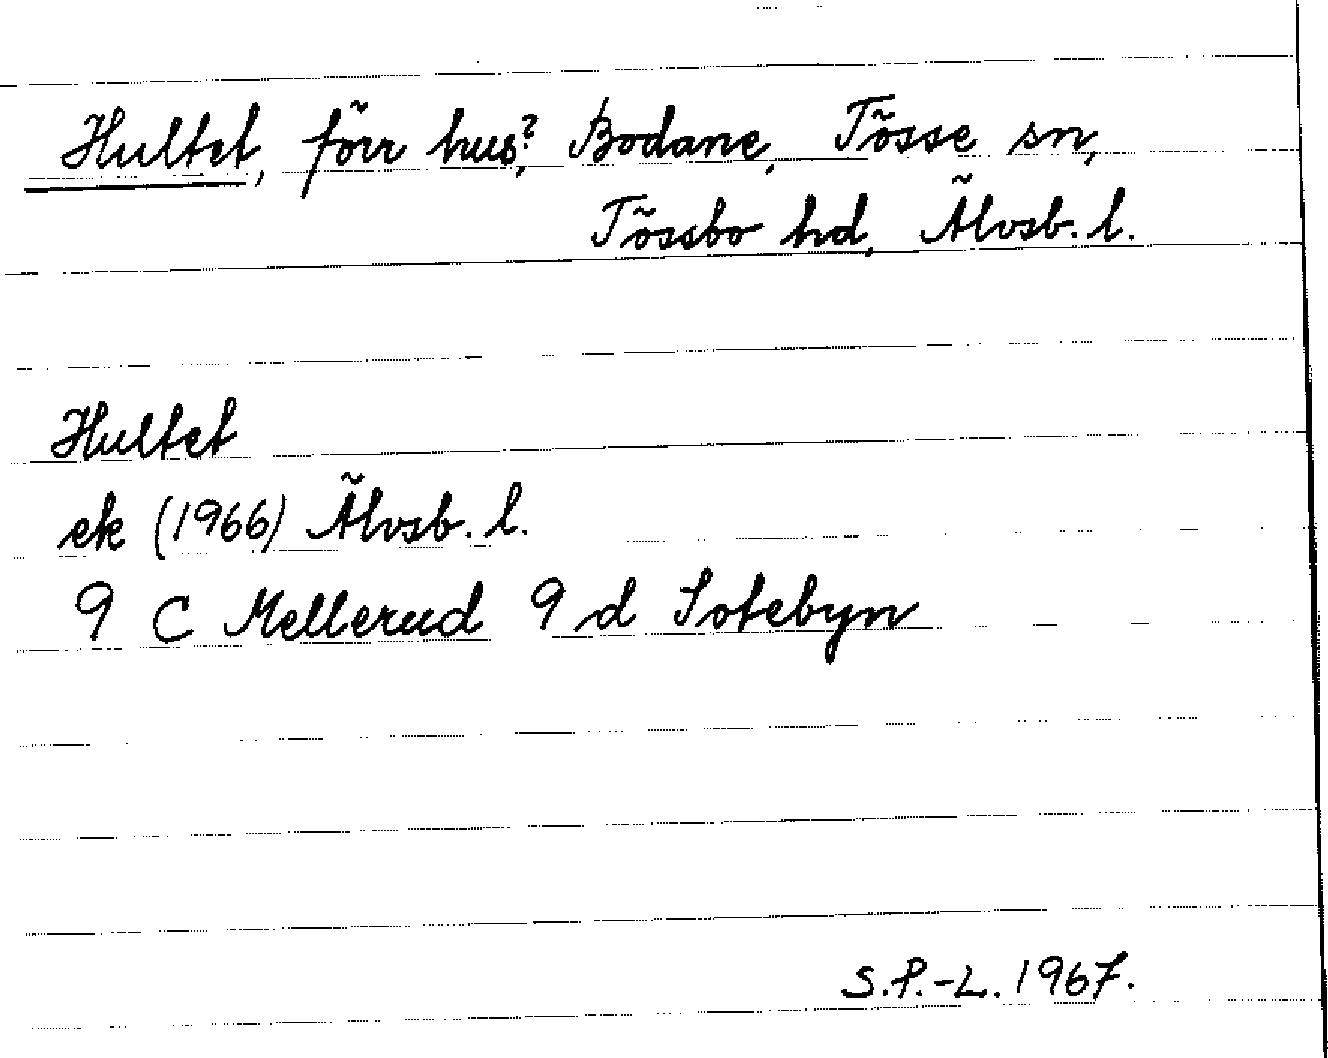 Hultet, förr hus?, Bodane, Tösse sn,
Tössbo hd, Älvsb. l.
Hultet
ek (1966) Älvsb. l.
9 C Mellerud 9 d Sotebyn
S.P.-L. 1967.